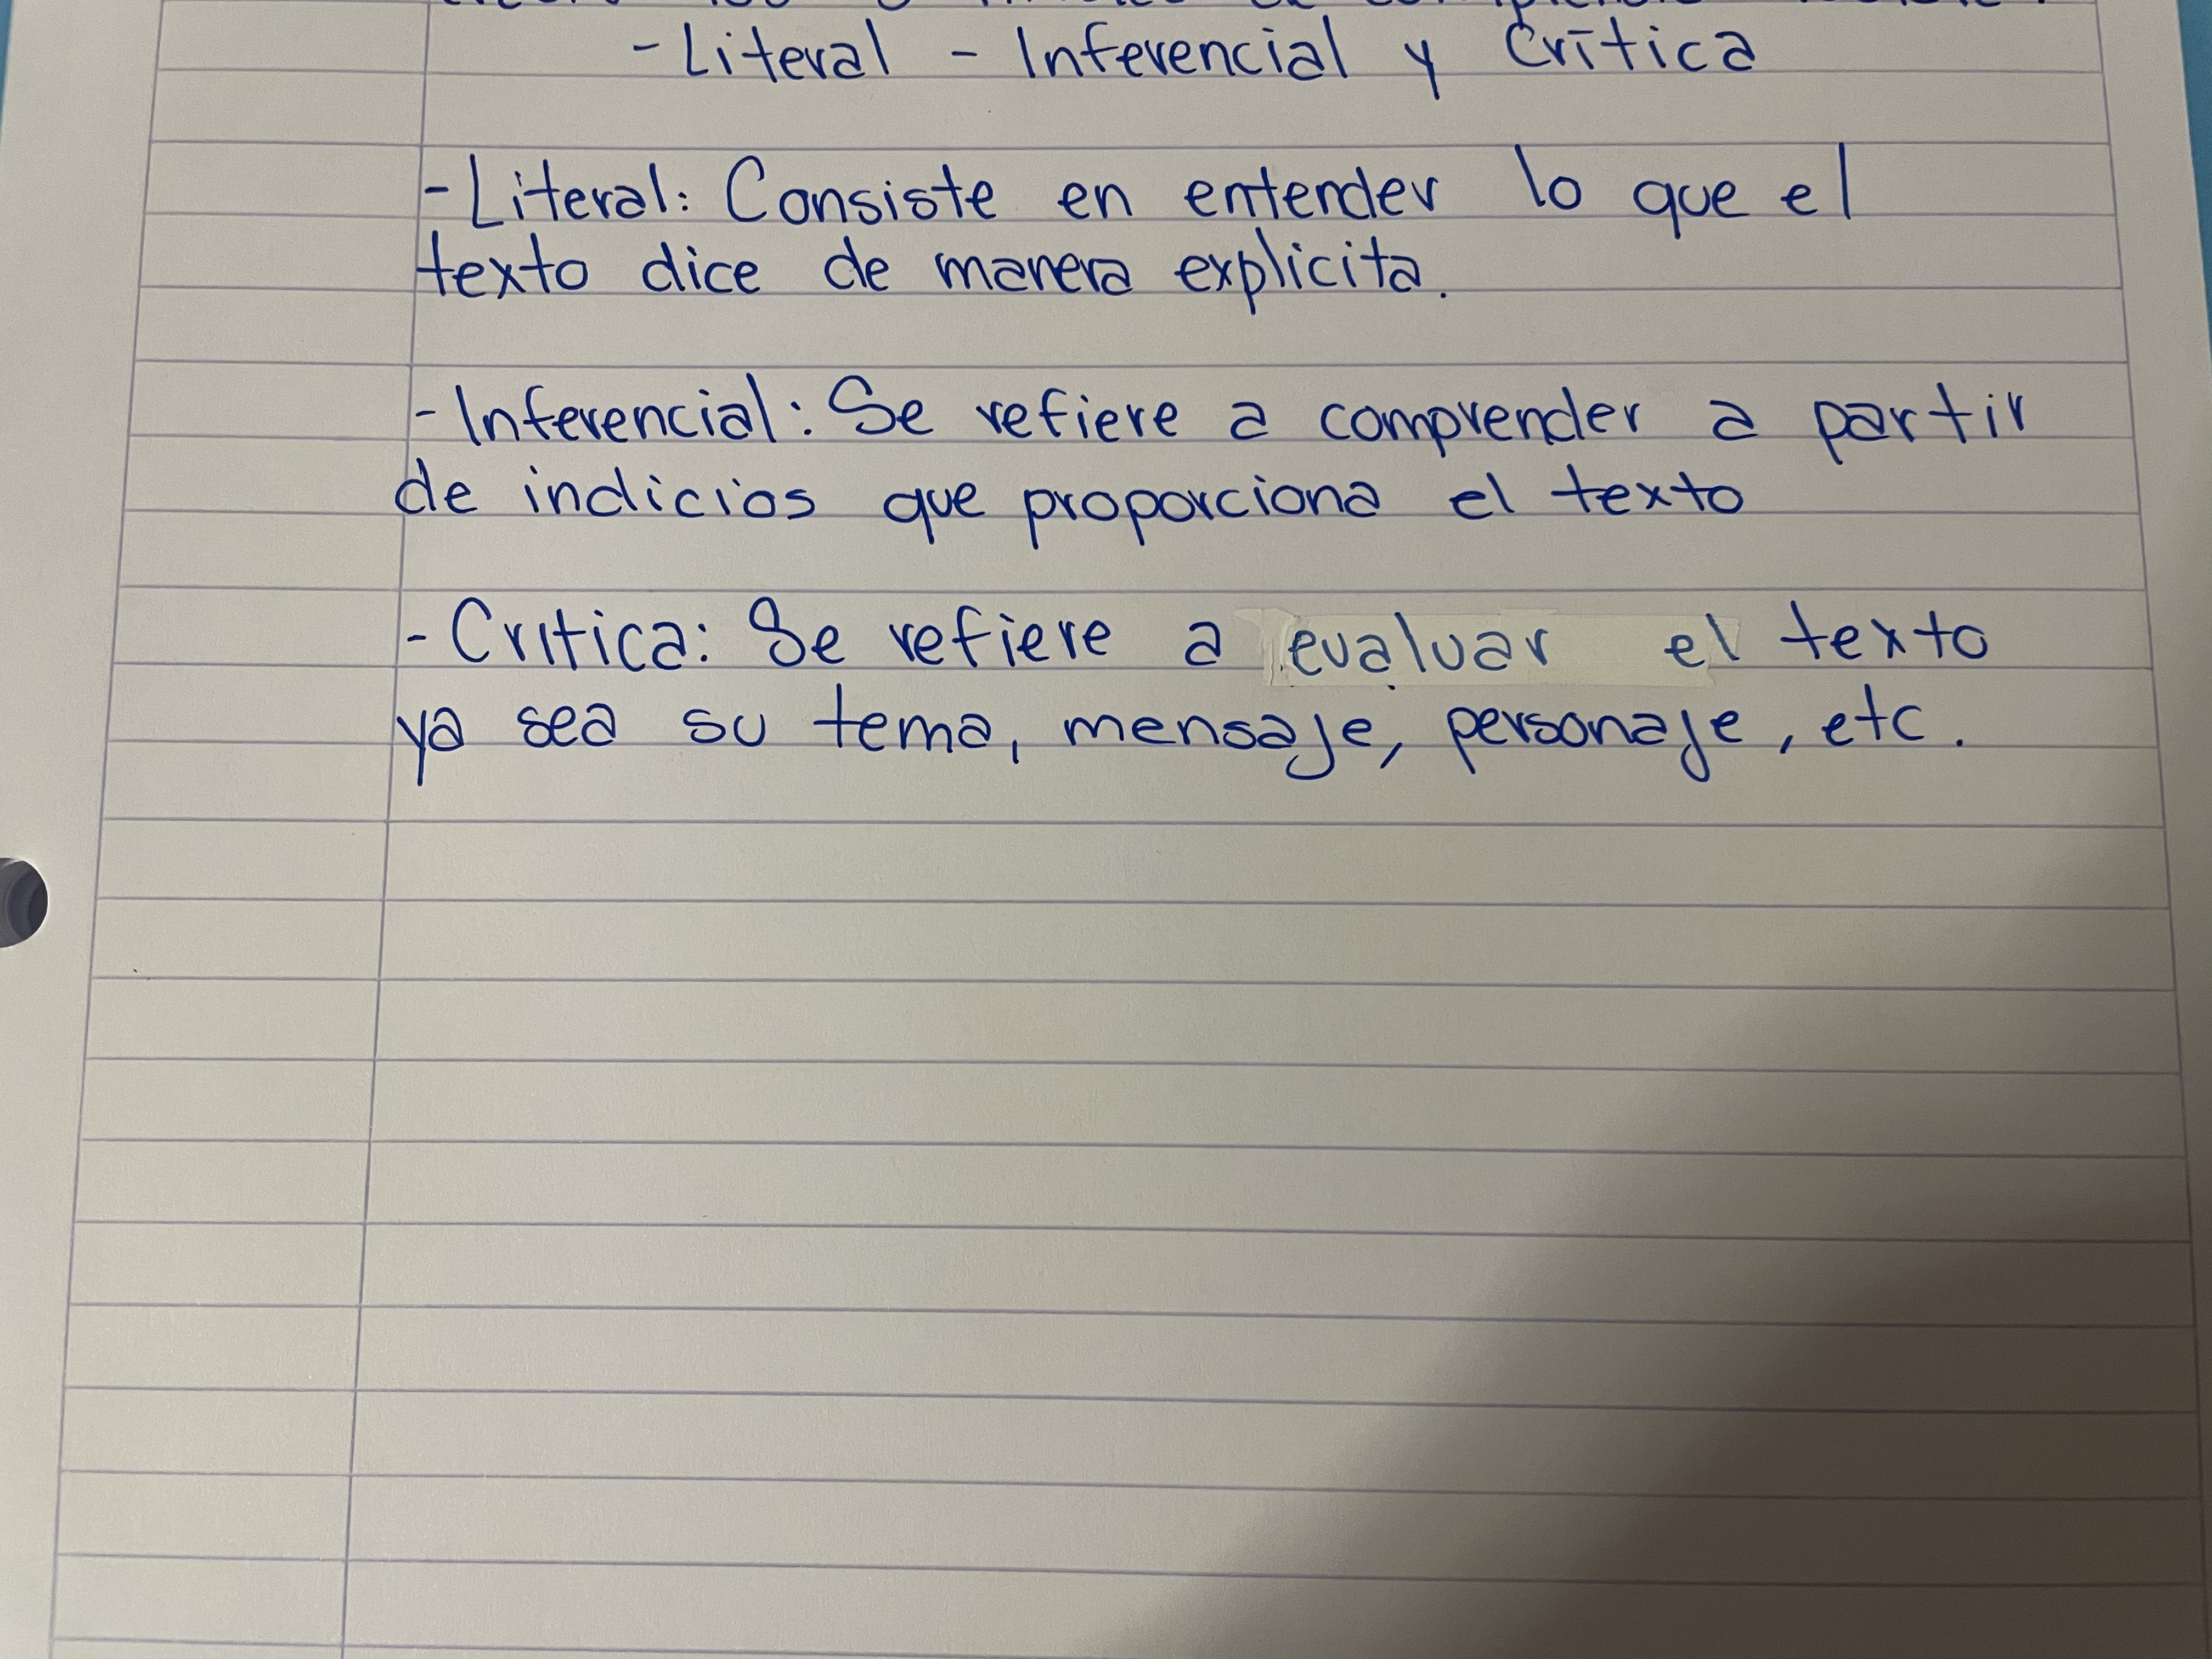 - Literal - Inferencial y Crítica
- Literal: Consiste en entender lo que el
texto dice de manera explicita.
- Inferencial: Se refiere a comprender a partir
de indicios que proporciona el texto
- Critica: Se refiere a evaluar el texto
ya sea su tema, mensaje, personaje, etc.